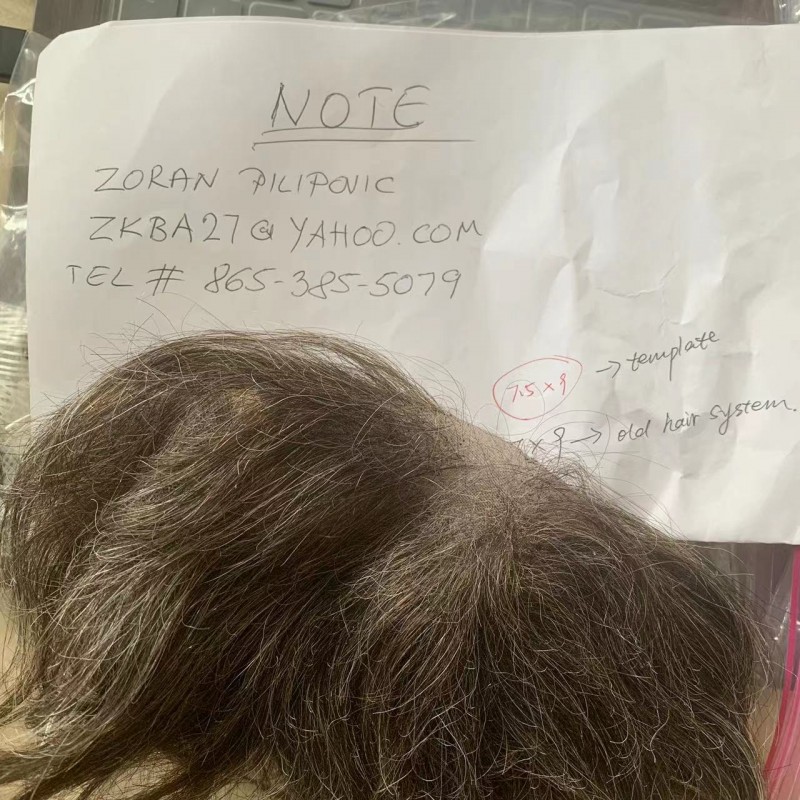 NOTE
ZORAN PILIPOVIC
ZKBA27@YAHOO.COM
TEL # 865-385-5079
7.5 x 9 → template
x 9 → old hair system.